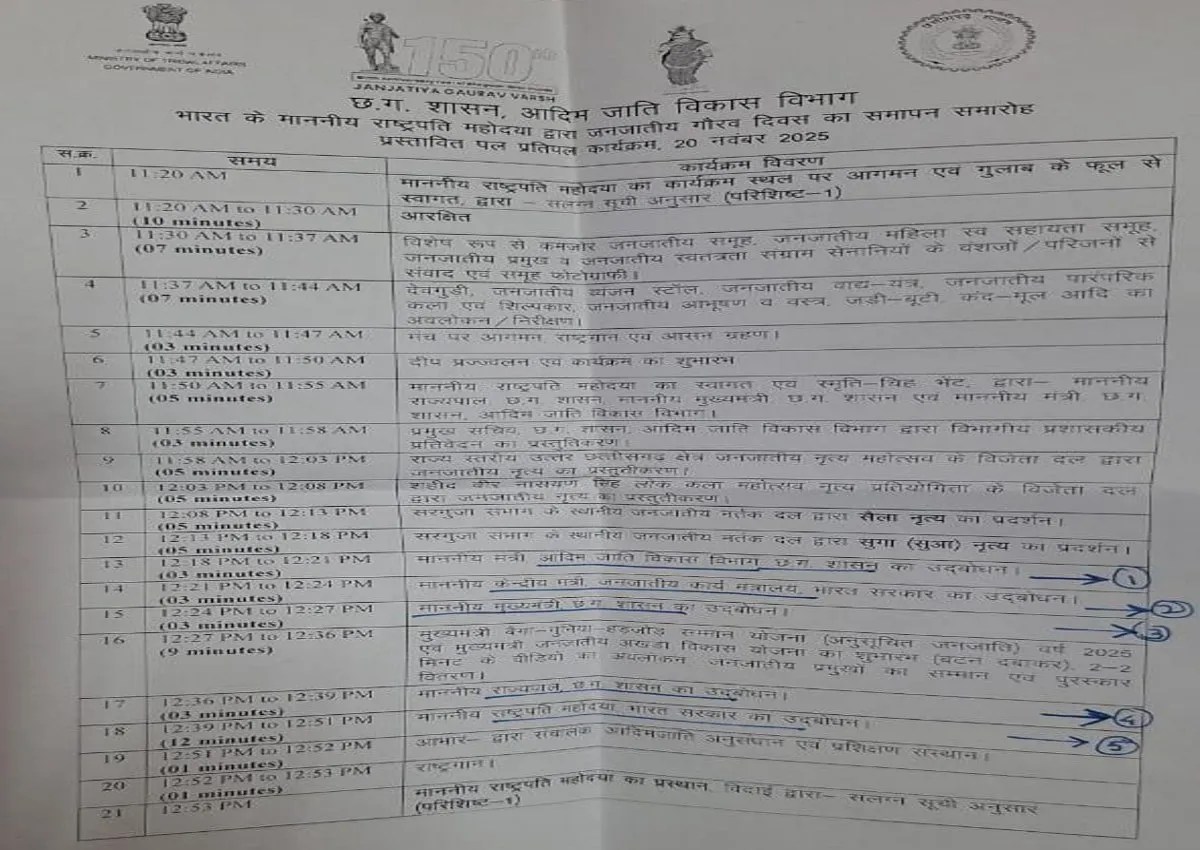 MINISTRY OF TRIBAL AFFAIRS
GOVERNMENT OF INDIA
150
JANJATIYA GAURAV VARSH
छत्तीसगढ़ शासन
छ.ग. शासन, आदिम जाति विकास विभाग
भारत के माननीय राष्ट्रपति महोदया द्वारा जनजातीय गौरव दिवस का समापन समारोह
प्रस्तावित पल प्रतिपल कार्यक्रम, 20 नवंबर 2025
स.क्र. समय कार्यक्रम विवरण
1 11:20 AM माननीय राष्ट्रपति महोदया का कार्यक्रम स्थल पर आगमन एवं गुलाब के फूल से
स्वागत, द्वारा – सलग्न सूची अनुसार (परिशिष्ट–1)
2 11:20 AM to 11:30 AM आरक्षित
(10 minutes)
3 11:30 AM to 11:37 AM विशेष रूप से कमजोर जनजातीय समूह, जनजातीय महिला स्व सहायता समूह,
(07 minutes) जनजातीय प्रमुख व जनजातीय स्वतत्रता संग्राम सेनानियों के वंशजों/परिजनों से
संवाद एवं समूह फोटोग्राफी।
4 11:37 AM to 11:44 AM देवगुड़ी, जनजातीय व्यंजन स्टॉल, जनजातीय वाद्य-यंत्र, जनजातीय पारंपरिक
(07 minutes) कला एवं शिल्पकार, जनजातीय आभूषण व वस्त्र, जड़ी-बूटी, कंद-मूल आदि का
अवलोकन/निरीक्षण।
5 11:44 AM to 11:47 AM मंच पर आगमन, राष्ट्रगान एवं आसन ग्रहण।
(03 minutes)
6 11:47 AM to 11:50 AM दीप प्रज्ज्वलन एवं कार्यक्रम का शुभारंभ
(03 minutes)
7 11:50 AM to 11:55 AM माननीय राष्ट्रपति महोदया का स्वागत एवं स्मृति-चिह भेंट, द्वारा– माननीय
(05 minutes) राज्यपाल, छ.ग. शासन, माननीय मुख्यमंत्री, छ.ग. शासन एवं माननीय मंत्री, छ.ग.
शासन, आदिम जाति विकास विभाग।
8 11:55 AM to 11:58 AM प्रमुख सचिव, छ.ग. शासन, आदिम जाति विकास विभाग द्वारा विभागीय प्रशासकीय
(03 minutes) प्रतिवेदन का प्रस्तुतिकरण।
9 11:58 AM to 12:03 PM राज्य स्तरीय उत्तर छत्तीसगढ़ क्षेत्र जनजातीय नृत्य महोत्सव के विजेता दल द्वारा
(05 minutes) जनजातीय नृत्य का प्रस्तुतीकरण।
10 12:03 PM to 12:08 PM शहीद वीर नारायण सिंह लोक कला महोत्सव नृत्य प्रतियोगिता के विजेता दल
(05 minutes) द्वारा जनजातीय नृत्य का प्रस्तुतीकरण।
11 12:08 PM to 12:13 PM सरगुजा संभाग के स्थानीय जनजातीय नर्तक दल द्वारा सैला नृत्य का प्रदर्शन।
(05 minutes)
12 12:13 PM to 12:18 PM सरगुजा संभाग के स्थानीय जनजातीय नर्तक दल द्वारा सुगा (सुआ) नृत्य का प्रदर्शन।
(05 minutes)
13 12:18 PM to 12:21 PM माननीय मंत्री आदिम जाति विकास विभाग, छ.ग. शासन का उद्बोधन। 1
(03 minutes)
14 12:21 PM to 12:24 PM माननीय केन्दीय मंत्री, जनजातीय कार्य मंत्रालय, भारत सरकार का उद्बोधन। 2
(03 minutes)
15 12:24 PM to 12:27 PM माननीय मुख्यमंत्री छ.ग. शासन का उद्बोधन। 3
(03 minutes)
16 12:27 PM to 12:36 PM मुख्यमंत्री बैगा-गुनिया-हड़जोड़ सम्मान योजना (अनुसूचित जनजाति) वर्ष 2025
(9 minutes) एवं मुख्यमंत्री जनजातीय अखडा विकास योजना का शुभारंभ (बटन दबाकर), 2-2
मिनट के वीडियो का अवलोकन जनजातीय प्रमुखों का सम्मान एवं पुरस्कार
वितरण।
17 12:36 PM to 12:39 PM माननीय राज्यपाल, छ.ग. शासन का उद्बोधन। 4
(03 minutes)
18 12:39 PM to 12:51 PM माननीय राष्ट्रपति महोदया, भारत सरकार का उद्बोधन। 5
(12 minutes)
19 12:51 PM to 12:52 PM आभार– द्वारा संचालक आदिमजाति अनुसंधान एवं प्रशिक्षण संस्थान।
(01 minutes)
20 12:52 PM to 12:53 PM राष्ट्रगान।
(01 minutes)
21 12:53 PM माननीय राष्ट्रपति महोदया का प्रस्थान, विदाई द्वारा– सलग्न सूची अनुसार
(परिशिष्ट–1)